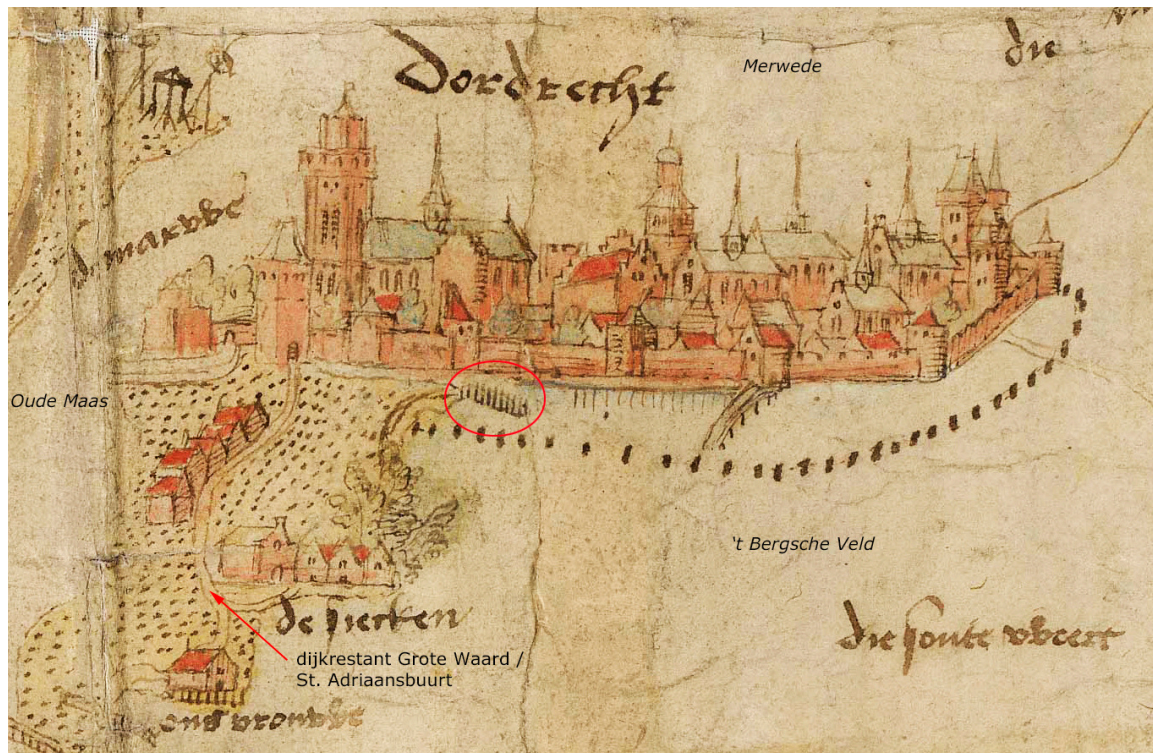 Dordrecht
Merwede
die
de marwe
Oude Maas
't Bergsche Veld
de siecken
dijkrestant Grote Waard /
St. Adriaansbuurt
ons vrouwe